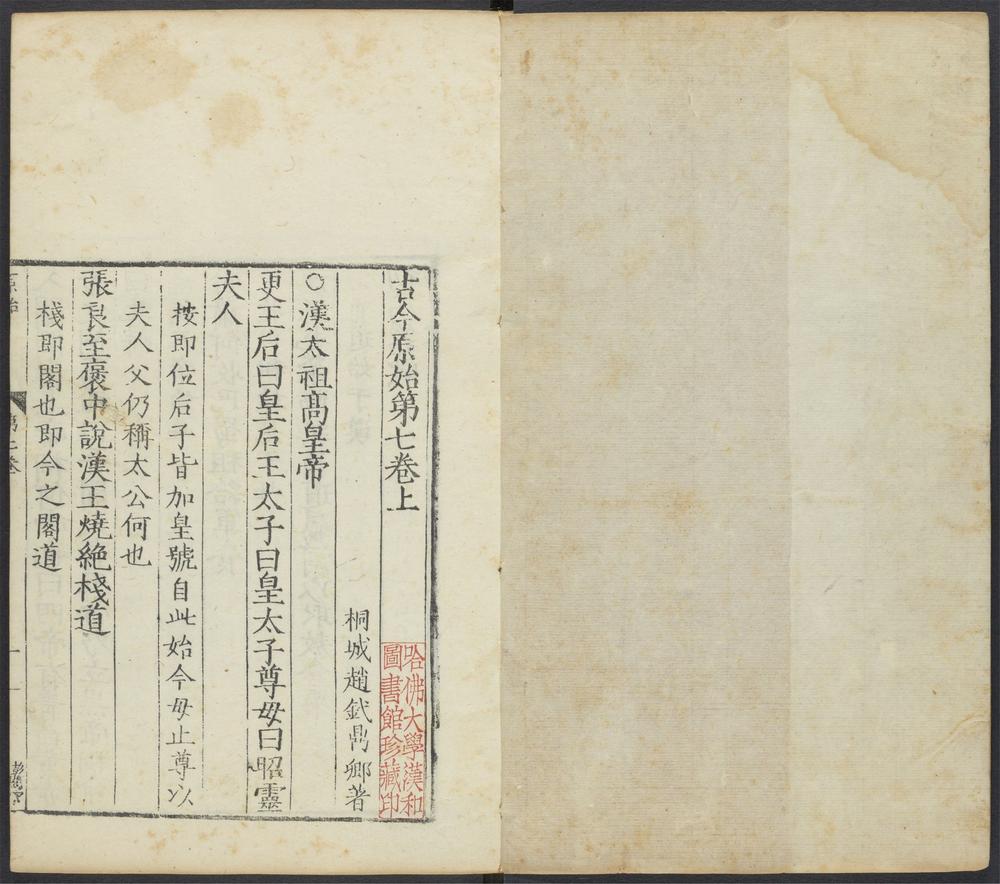 古今原始第七卷上
桐城趙釴鼎卿著
○漢太祖高皇帝
更王后曰皇后王太子曰皇太子尊母曰昭靈
夫人
按即位后子皆加皇號自此始今母止尊以
夫人父仍稱太公何也
張良至褒中說漢王燒絶棧道
棧即閣也即今之閣道
哈佛大學漢和
圖書館珍藏印